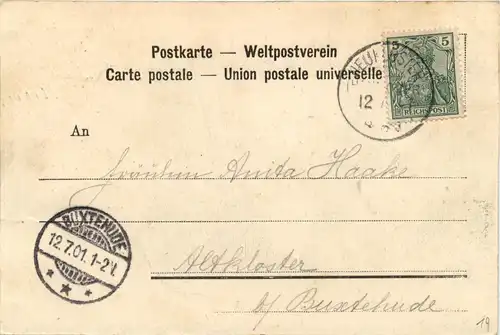 Postkarte — Weltpostverein
Carte postale — Union postale universelle
5
REICHSPOST
12
An
Fräulein Anita Haake
BUXTEHUDE
12.7.01.1-2N.
Altkloster
b/ Buxtehude
19